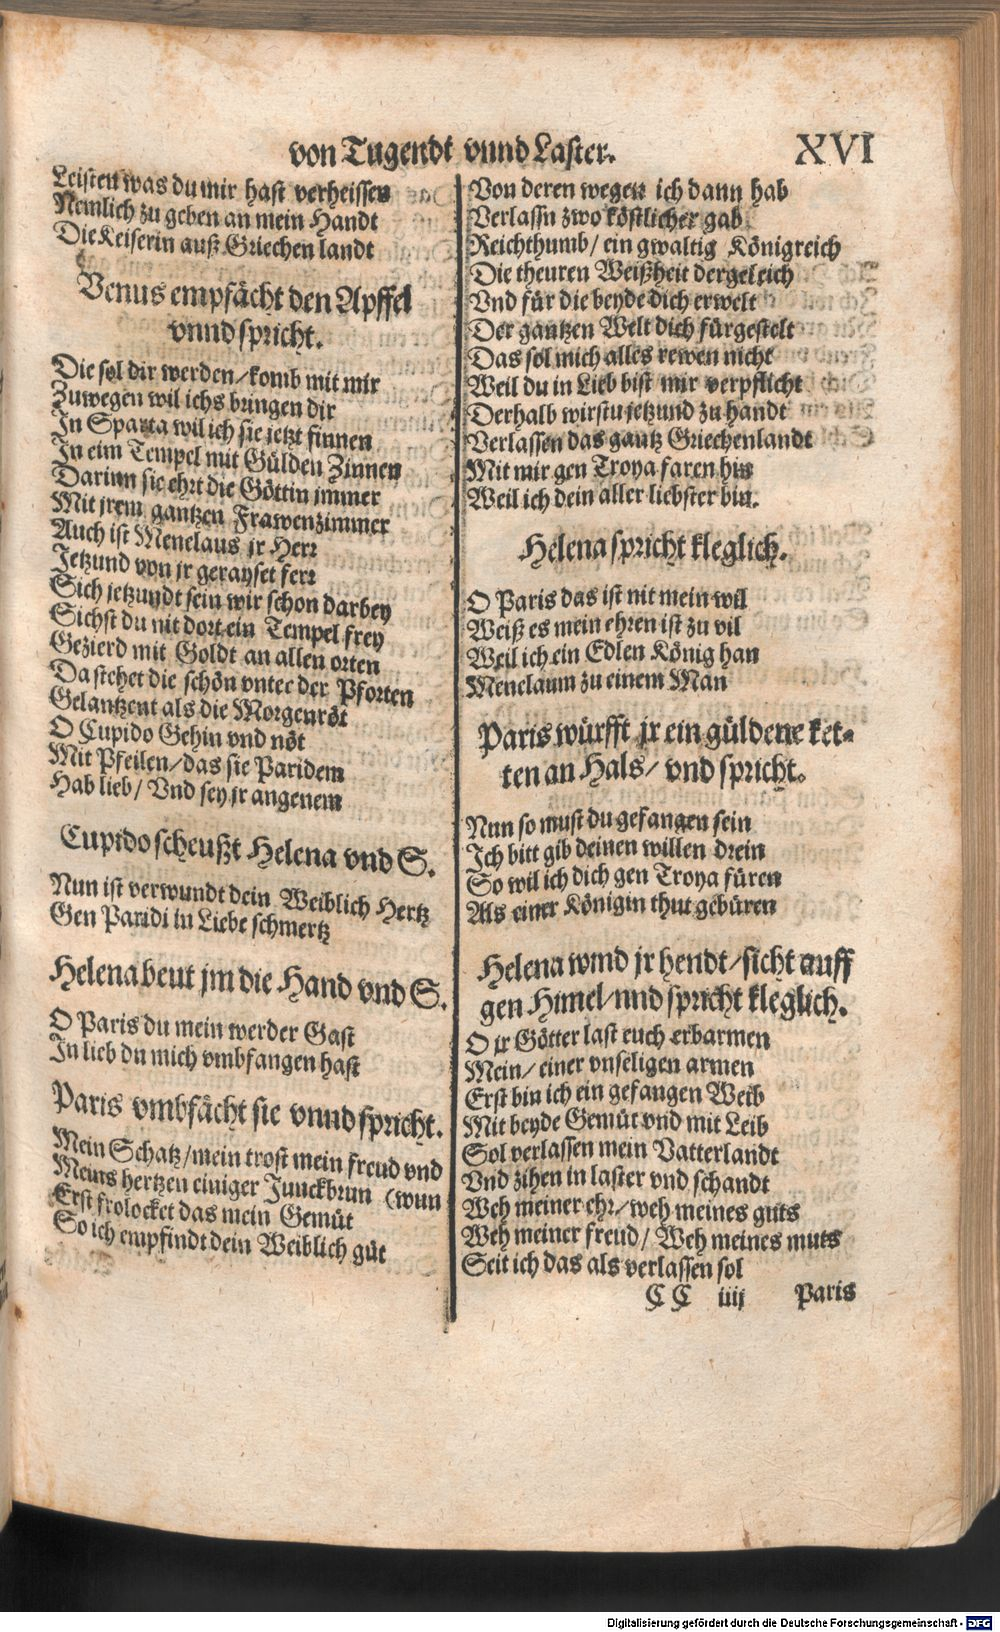 von Tugendt vnnd Laster. XVI
Leisten was du mir hast verheissen
Nemlich zu geben an mein Handt
Die Keiserin auß Griechen landt
Venus empfächt den Apffel
vnnd spricht.
Die sol dir werden/ komb mit mir
Zuwegen wil ichs bringen dir
In Sparta wil ich sie jetzt finnen
In eim Tempel mit Gülden Zinnen
Darinn sie ehrt die Göttin jmmer
Mit jrem gantzen Frawenzimmer
Auch ist Menelaus jr Herr
Jetzund von jr gerayset ferr
Sich jetzundt sein wir schon darbey
Sichst du nit dort ein Tempel frey
Gezierd mit Goldt an allen orten
Da stehet die schön vnter der Pforten
Gelantzent als die Morgenröt
O Cupido Gehin vnd nöt
Mit Pfeilen/ das sie Paridem
Hab lieb/ Vnd sey jr angenem
Cupido scheußt Helena vnd S.
Nun ist verwundt dein Weiblich Hertz
Gen Paridi in Liebe schmertz
Helena beut jm die Hand vnd S.
O Paris du mein werder Gast
In lieb du mich vmbfangen hast
Paris vmbfächt sie vnnd spricht.
Mein Schatz/ mein trost mein freud vnd
Meins hertzen einiger Junckbrun (wun
Erst frolocket das mein Gemüt
So ich empfindt dein Weiblich güt
Von deren wegen ich dann hab
Verlassn zwo köstlicher gab
Reichthumb/ ein gwaltig Königreich
Die theuren Weißheit dergeleich
Vnd für die beyde dich erwelt
Der gantzen Welt dich fürgestelt
Das sol mich alles rewen nicht
Weil du in Lieb bist mir verpflicht
Derhalb wirstu jetzund zu handt
Verlassen das gantz Griechenlandt
Mit mir gen Troya faren hin
Weil ich dein aller liebster bin.
Helena spricht kleglich.
O Paris das ist nit mein wil
Weiß es mein ehren ist zu vil
Weil ich ein Edlen König han
Menelaum zu einem Man
Paris würfft jr ein güldene ket-
ten an Hals/ vnd spricht.
Nun so must du gefangen sein
Ich bitt gib deinen willen drein
So wil ich dich gen Troya füren
Als einer Königin thut gebüren
Helena wind jr hendt/ sicht auff
gen Himel/ vnd spricht kleglich.
O jr Götter last euch erbarmen
Mein/ einer vnseligen armen
Erst bin ich ein gefangen Weib
Mit beyde Gemüt vnd mit Leib
Sol verlassen mein Vatterlandt
Vnd zihen in laster vnd schandt
Weh meiner ehr/ weh meines guts
Weh meiner freud/ Weh meines muts
Seit ich das als verlassen sol
CC iiij Paris
Digitalisierung gefördert durch die Deutsche Forschungsgemeinschaft - DFG